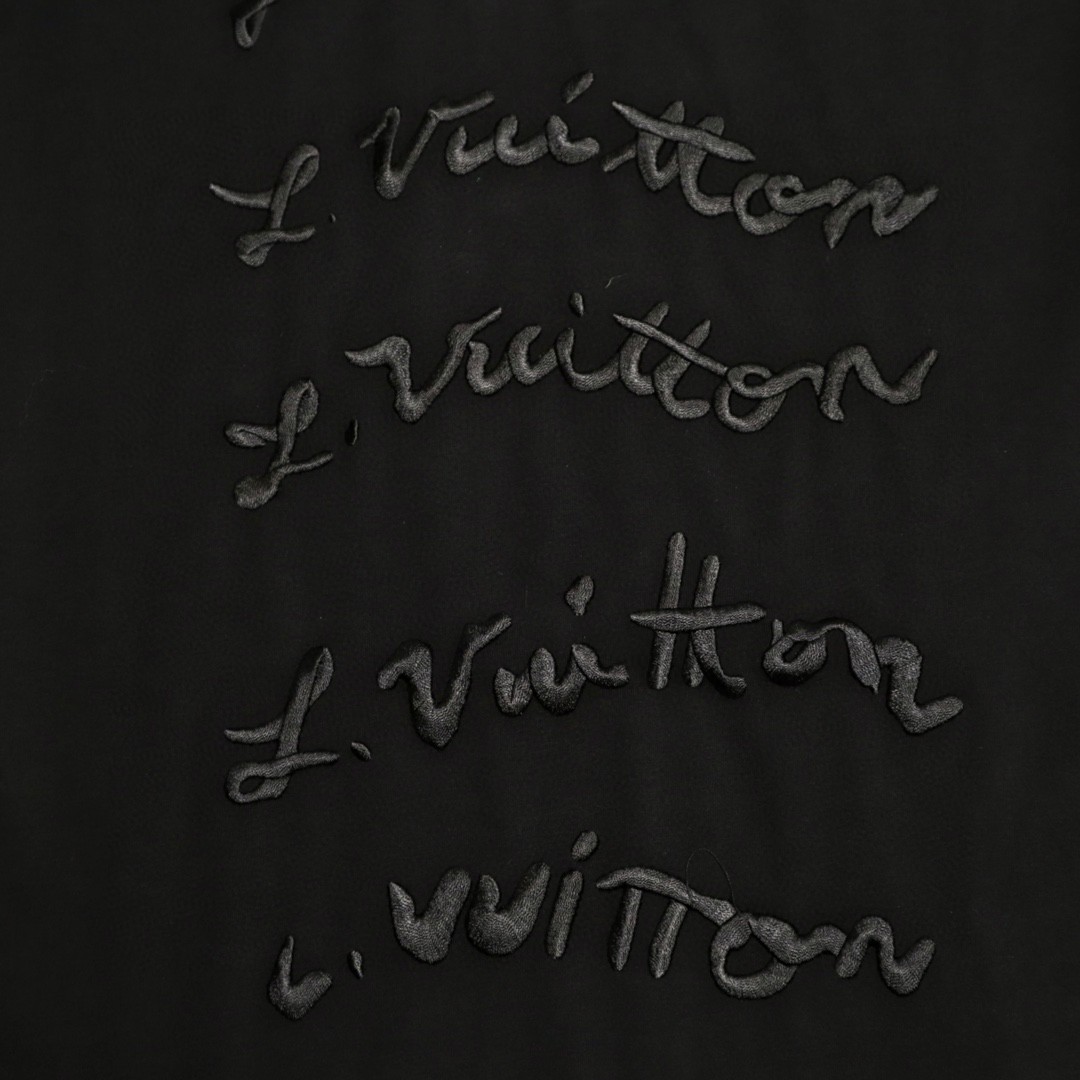 L. Vuitton
L. Vuitton
L. Vuitton
L. Vuitton